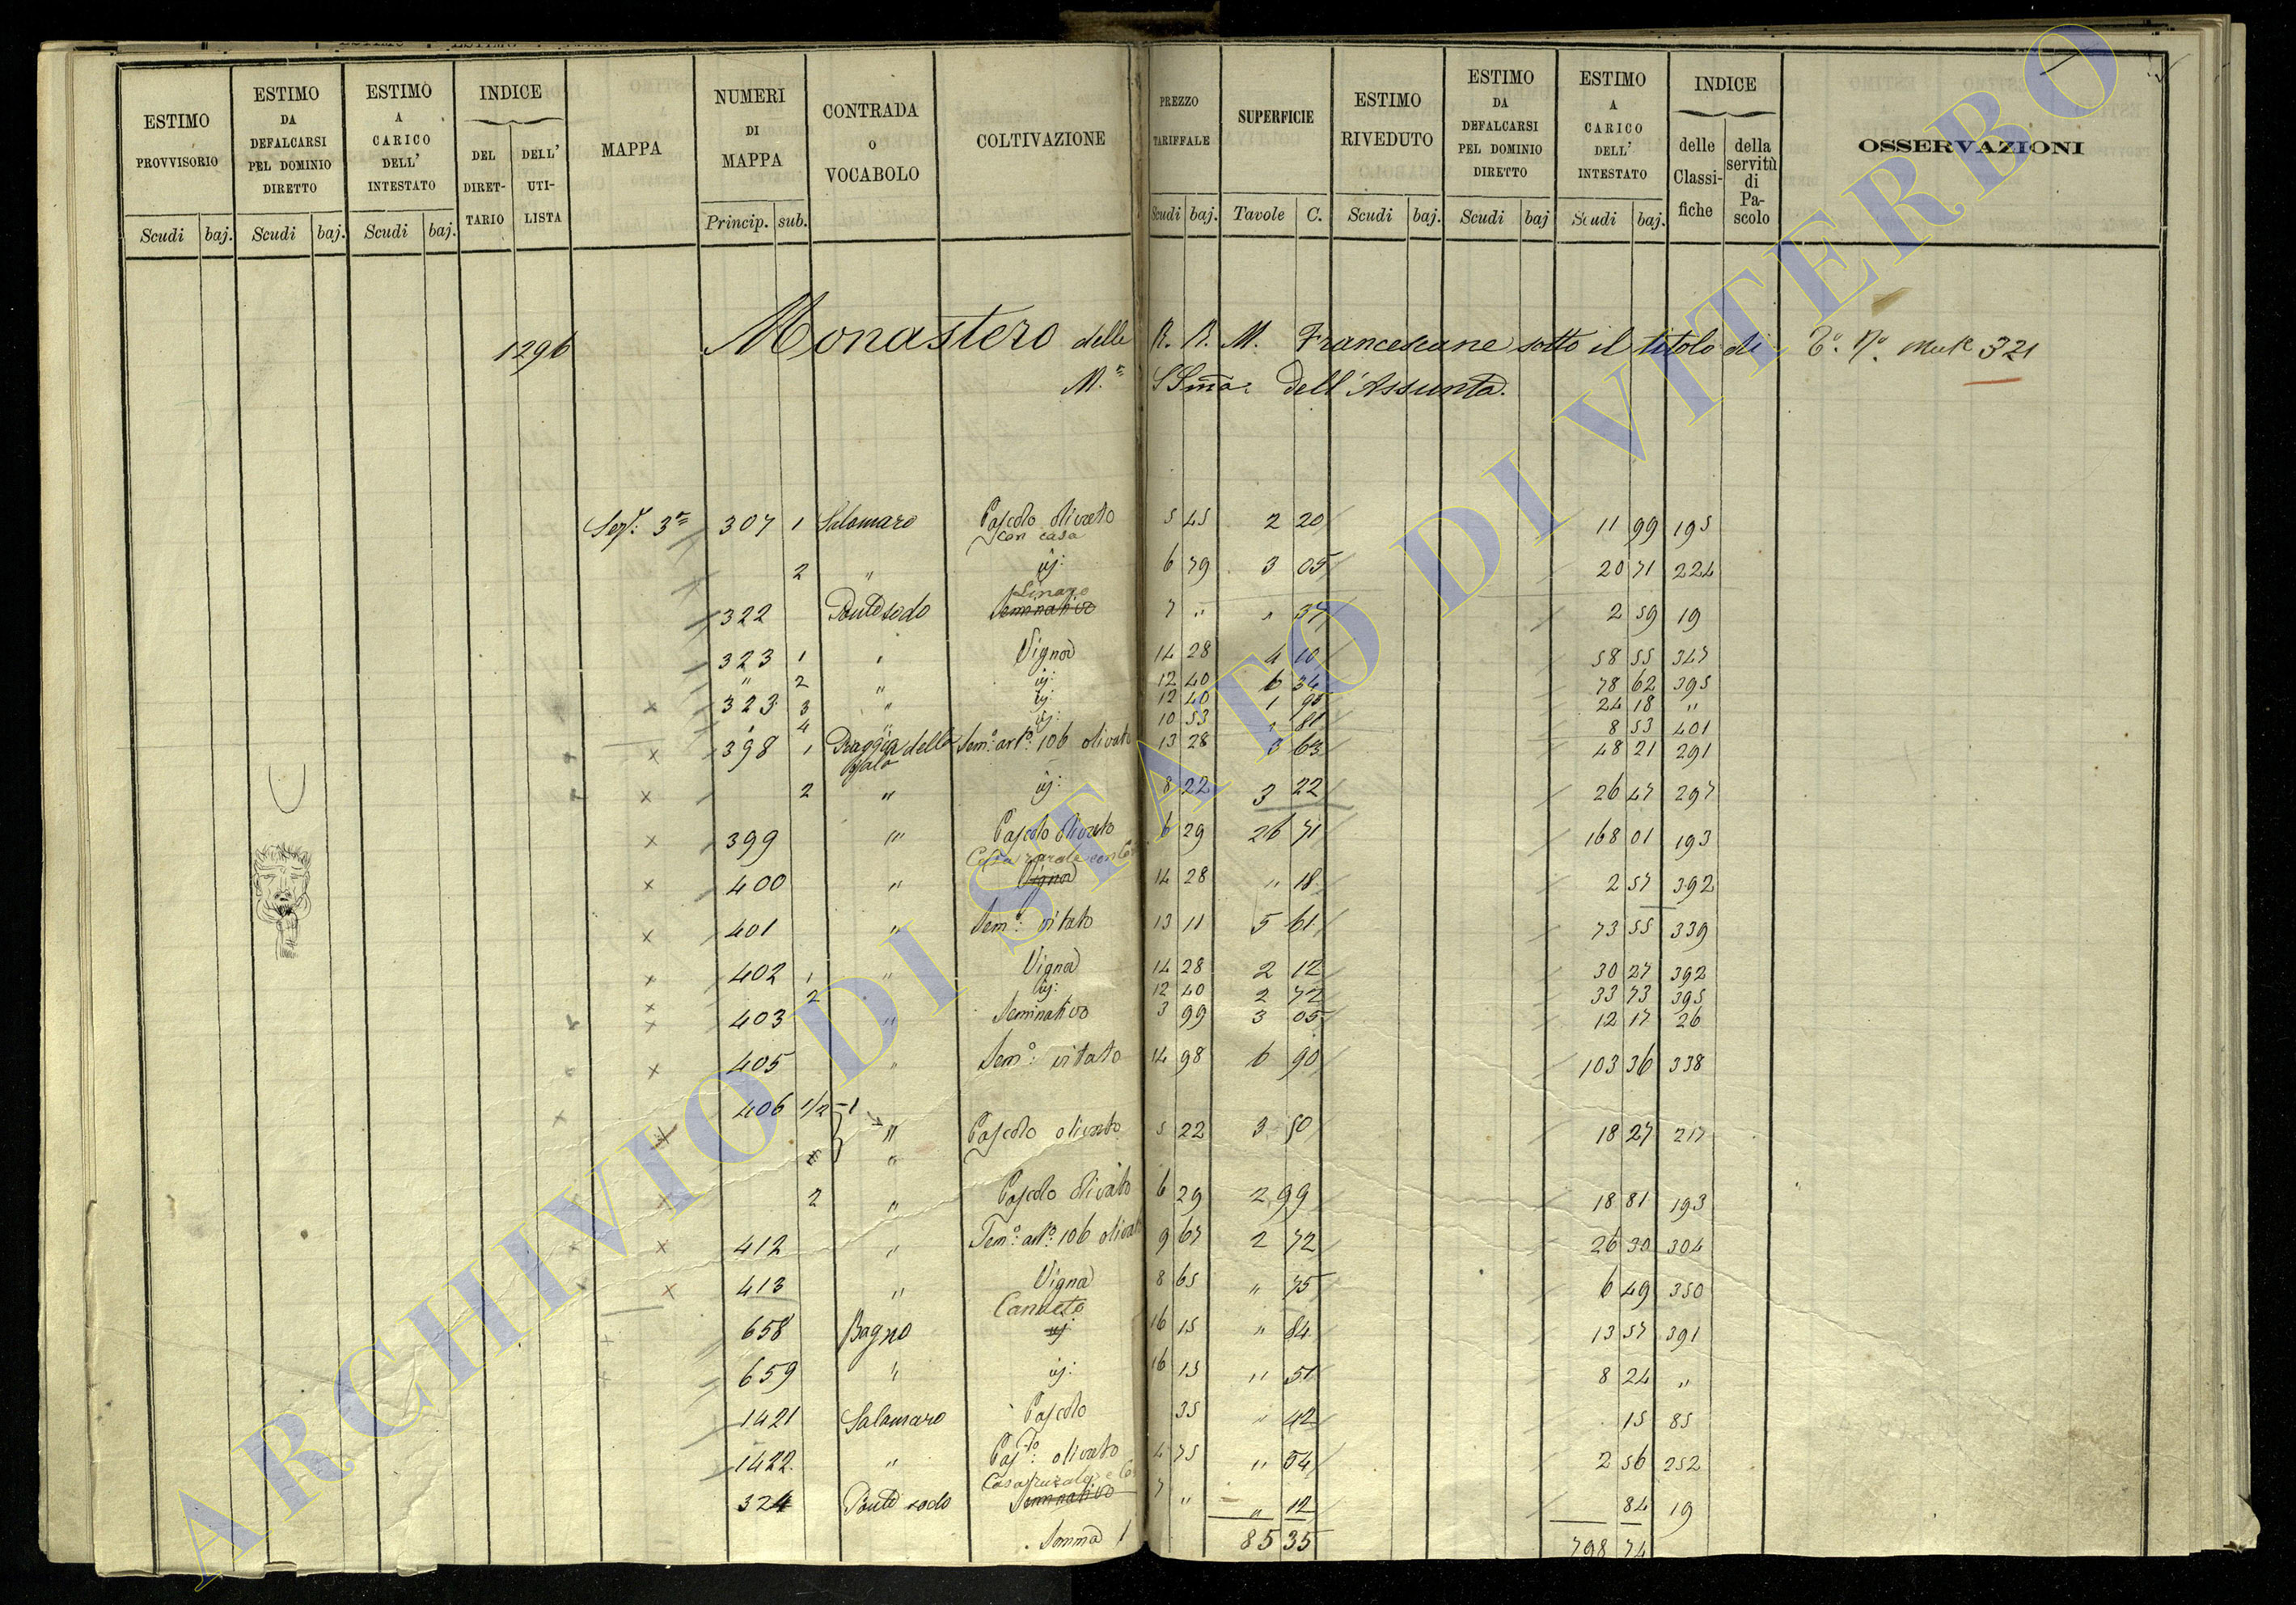 ESTIMO PROVVISORIO
Scudi baj.
ESTIMO DA DEFALCARSI PEL DOMINIO DIRETTO
Scudi baj.
ESTIMO A CARICO DELL' INTESTATO
Scudi baj.
INDICE
DEL DIRET-TARIO
DELL' UTI-LISTA
MAPPA
NUMERI DI MAPPA
Princip. sub.
CONTRADA o VOCABOLO
COLTIVAZIONE
PREZZO TARIFFALE
Scudi baj.
SUPERFICIE
Tavole C.
ESTIMO RIVEDUTO
Scudi baj.
ESTIMO DA DEFALCARSI PEL DOMINIO DIRETTO
Scudi baj
ESTIMO A CARICO DELL' INTESTATO
Scudi baj.
INDICE
delle Classi-fiche
della servitù di Pa-scolo
OSSERVAZIONI
1296 Monastero delle R. R. M. Francescane sotto il titolo di 321
M.ª SSma. dell'Assunta.
Sez. 3ª 307 1 Salamaro Pascolo olivato 5 45 2 20 11 99 195
con casa
2 " id: 6 79 3 05 20 71 224
Linaro
322 Pontesodo Seminativo 7 " " 37 2 59 19
323 1 " Vigna 14 28 4 10 58 55 347
" 2 " id: 12 40 6 34 78 62 395
323 3 " id: 12 40 1 95 24 18 "
4 " id: 10 53 " 81 8 53 401
398 1 Piaggia della Sem.º art.º 106 olivato 13 28 3 63 48 21 291
2 " id: 8 22 3 22 26 47 297
399 " Pascolo olivato 6 29 26 71 168 01 193
Casa rurale con
400 " Vigna 14 28 " 18 2 57 392
401 " Sem.º vitato 13 11 5 61 73 55 339
402 1 " Vigna 14 28 2 12 30 27 392
2 id: 12 40 2 72 33 73 395
403 " Seminativo 3 99 3 05 12 17 26
405 " Sem.º vitato 14 98 6 90 103 36 338
406 1/2 1
" Pascolo olivato 5 22 3 50 18 27 217
"
2 " Pascolo olivato 6 29 2 99 18 81 193
412 " Sem.º art.º 106 olivato 9 67 2 72 26 30 304
413 " Vigna 8 65 " 75 6 49 350
Canneto
658 Bagno id 16 15 " 84 13 57 391
659 " id: 16 15 " 51 8 24 "
1421 Salamaro Pascolo 35 " 42 15 85
1422 " Pasc.º olivato 4 75 " 54 2 56 252
Casa rurale e
324 Ponte sodo Seminativo 7 " " 12 84 19
Somma 85 35 798 74
ARCHIVIO DI STATO DI VITERBO